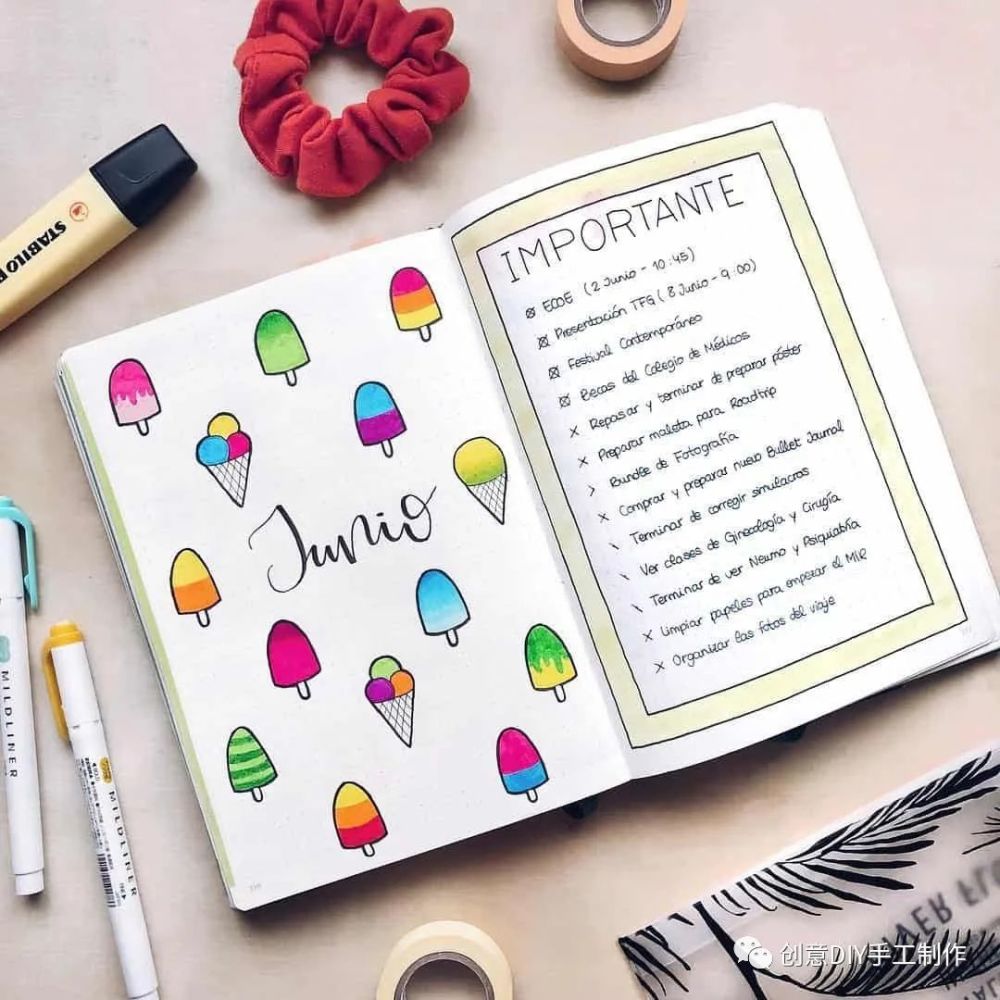 STABILO
Junio
IMPORTANTE
☒ ECOE (2 Junio - 10:45)
☒ Presentación TFG (8 Junio - 9:00)
☒ Festival Contemporáneo
☒ Becas del Colegio de Médicos
X Repasar y terminar de preparar póster
X Preparar maleta para Roadtrip
> Bundle de Fotografía
X Comprar y preparar nuevo Bullet Journal
\ Terminar de corregir simulacros
\ Ver clases de Ginecología y Cirugía
\ Terminar de ver Neumo y Psiquiatría
X Limpiar papeles para empezar el MIR
X Organizar las fotos del viaje
MILDLINER
MILDLINER
创意DIY手工制作